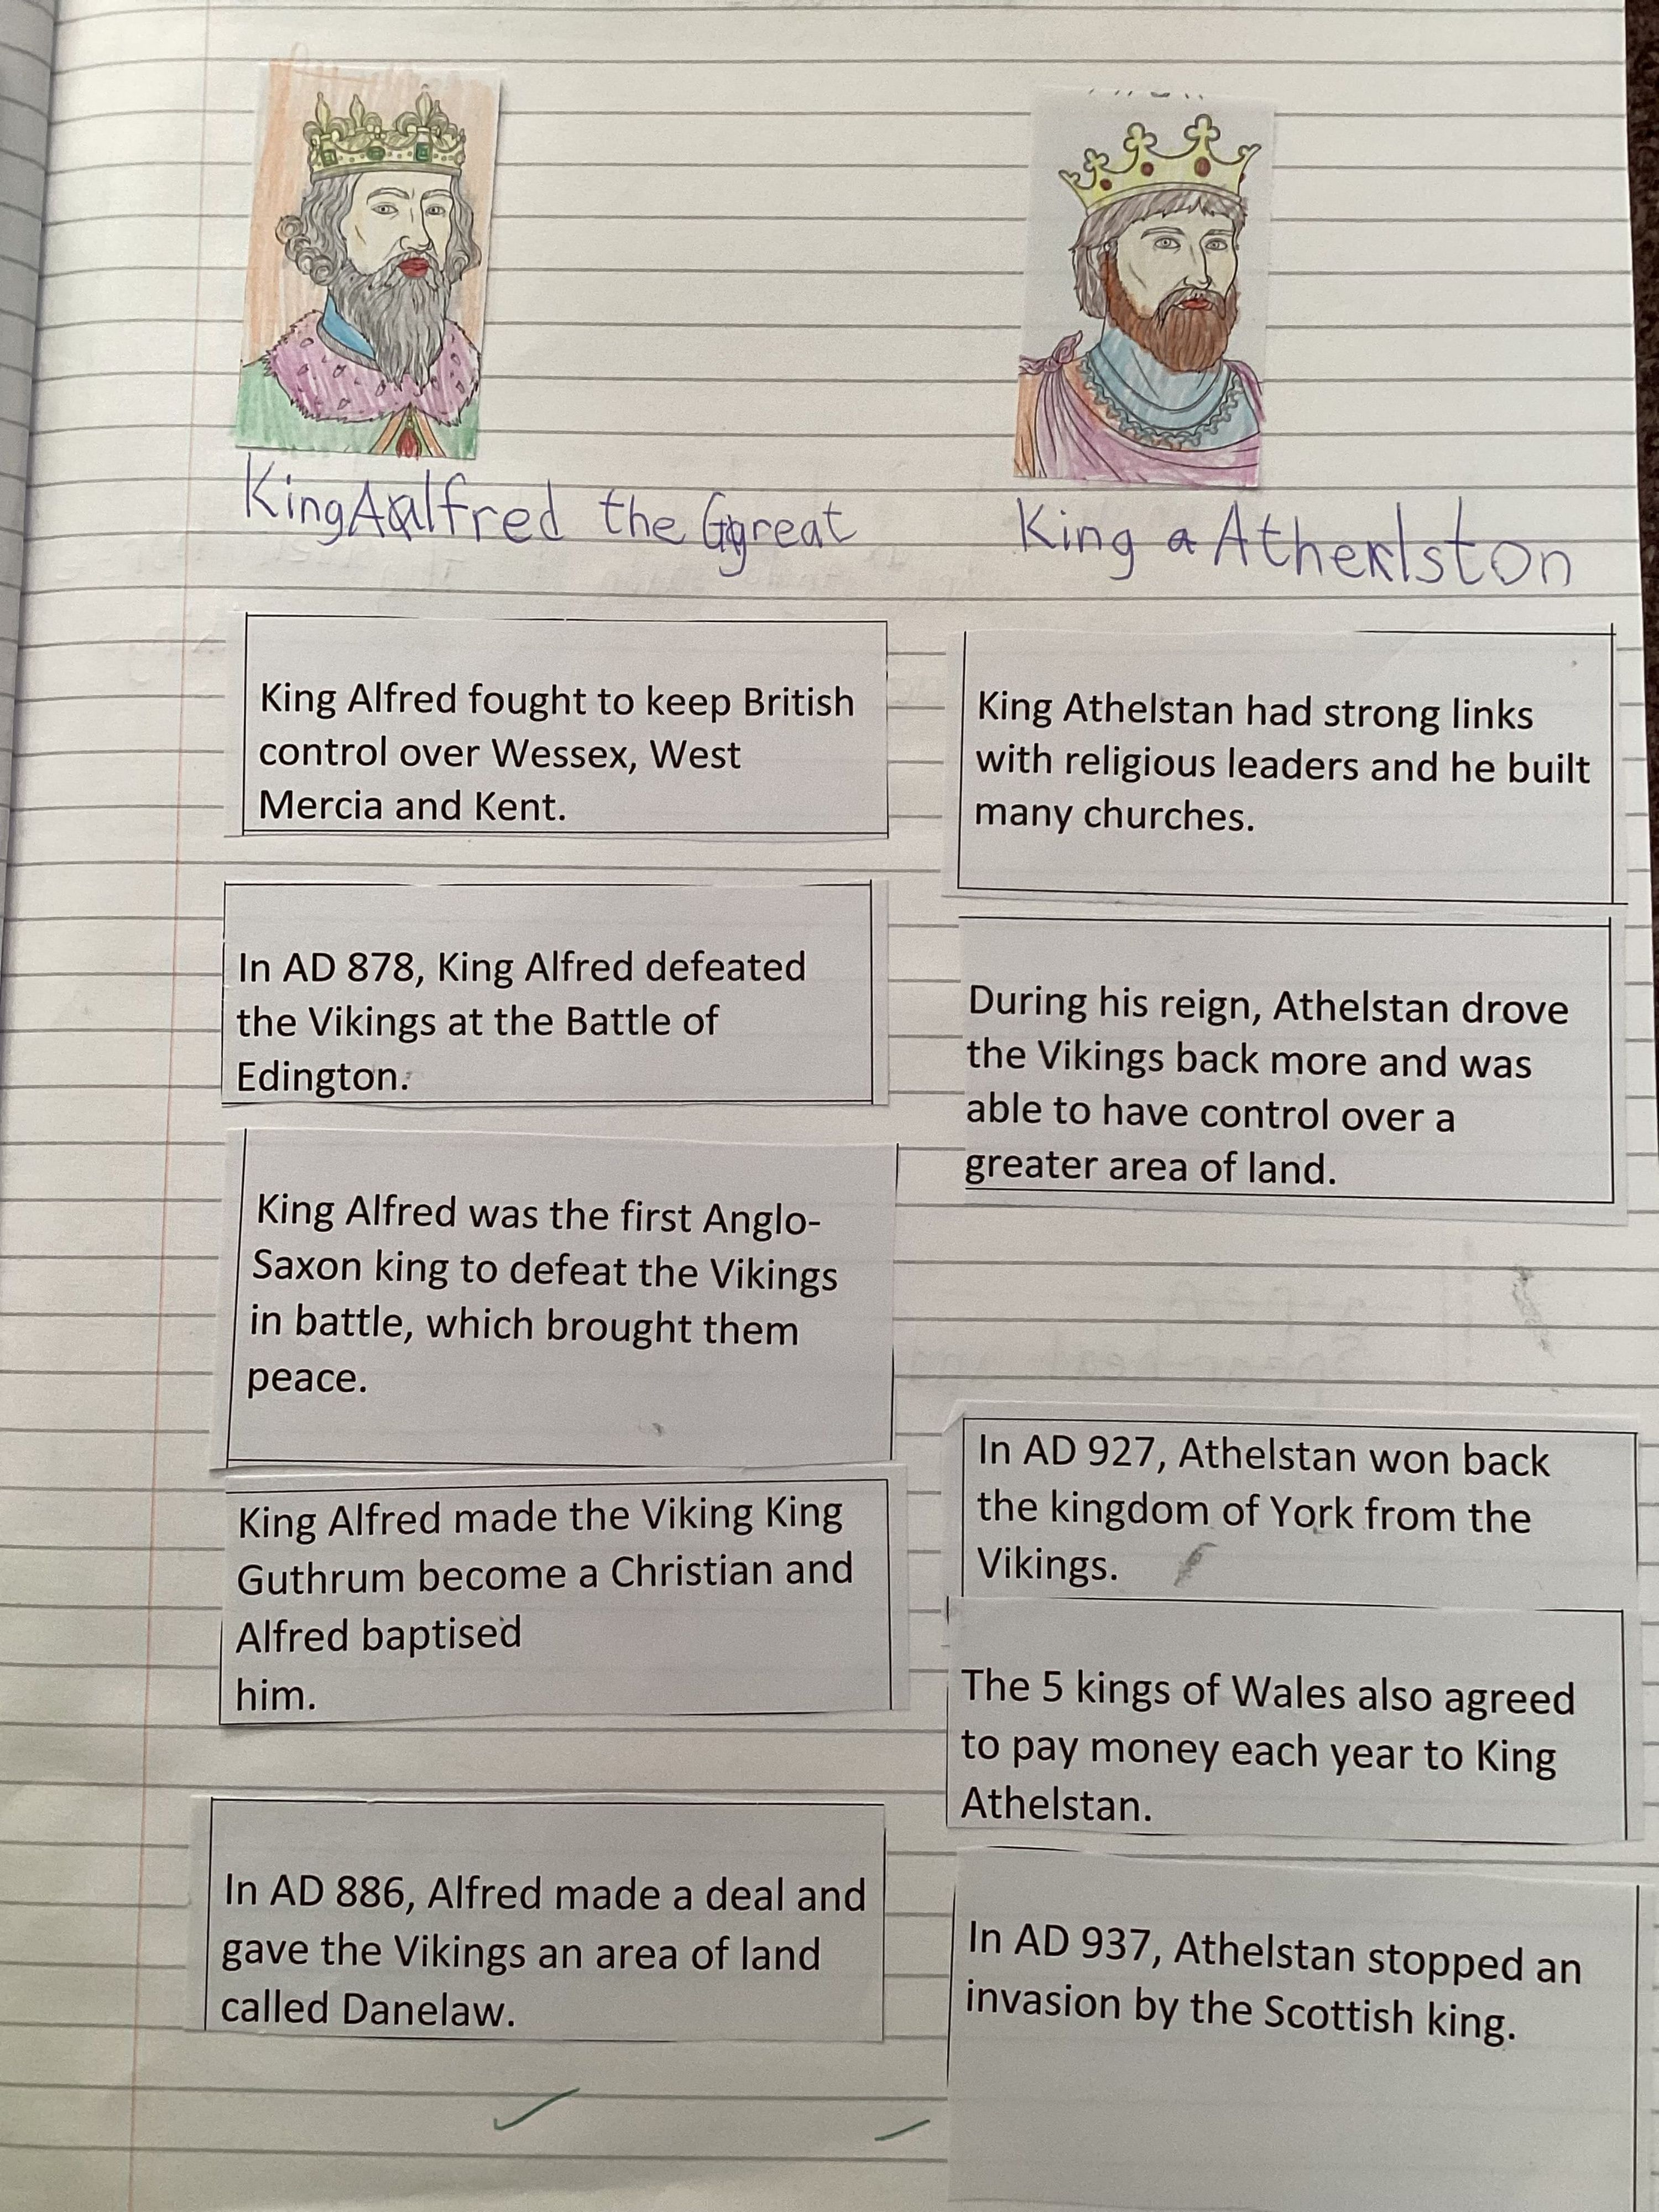 King Alfred the Great
King Athelston
King Alfred fought to keep British
control over Wessex, West
Mercia and Kent.
In AD 878, King Alfred defeated
the Vikings at the Battle of
Edington.
King Alfred was the first Anglo-
Saxon king to defeat the Vikings
in battle, which brought them
peace.
King Alfred made the Viking King
Guthrum become a Christian and
Alfred baptised
him.
In AD 886, Alfred made a deal and
gave the Vikings an area of land
called Danelaw.
King Athelstan had strong links
with religious leaders and he built
many churches.
During his reign, Athelstan drove
the Vikings back more and was
able to have control over a
greater area of land.
In AD 927, Athelstan won back
the kingdom of York from the
Vikings.
The 5 kings of Wales also agreed
to pay money each year to King
Athelstan.
In AD 937, Athelstan stopped an
invasion by the Scottish king.